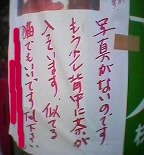 写真がないのです
もう少し背中に茶が
入ています。似る
猫でもいいです下さい